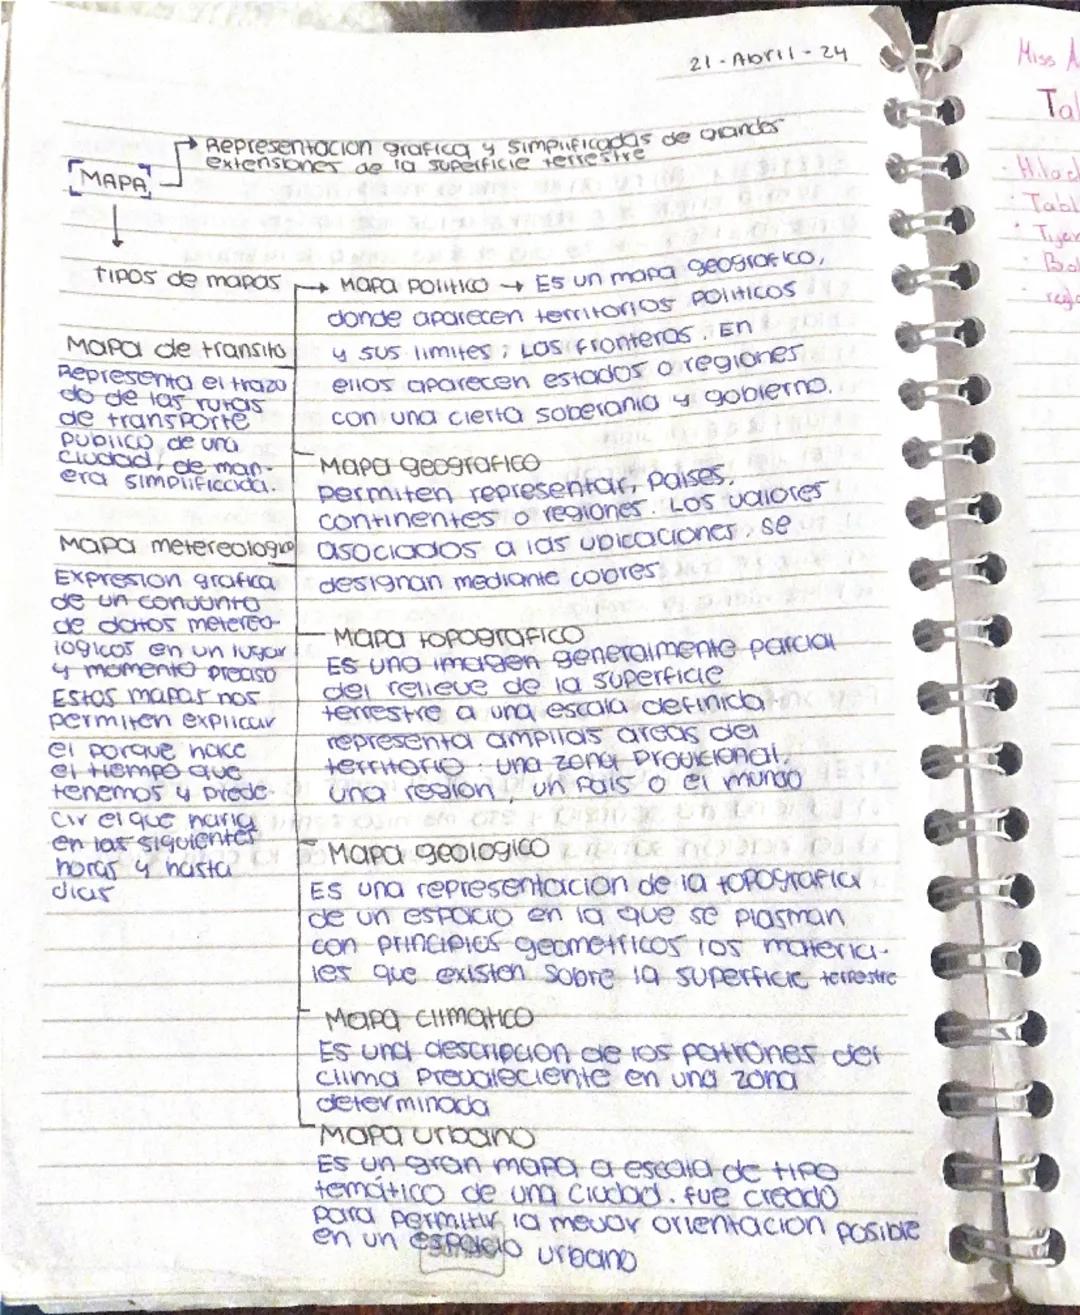 21-Abril-24
MAPA
Representacion grafica y simplificadas de grandes
extensiones de la superficie terrestre
Tipos de mapas
Mapa Politico → Es un mapa geografico,
donde aparecen territorios politicos
y sus limites, Las fronteras. En
ellos aparecen estados o regiones
con una cierta soberania y gobierno.
Mapa geografico
permiten representar, paises,
continentes o regiones. Los valores
asociados a las ubicaciones, se
designan mediante colores
Mapa topografico
Es una imagen generalmente parcial
del relieve de la superficie
terrestre a una escala definida
representa amplias areas del
territorio: una zona provicional,
una region, un Pais o el mundo
Mapa geologico
Es una representacion de la topografia
de un espacio en la que se plasman
con principios geometricos los materia-
les que existen sobre la superficie terrestre
Mapa climatico
Es una descripcion de los patrones del
clima prevaleciente en una zona
determinada
Mapa urbano
Es un gran mapa a escala de tipo
temático de una ciudad. fue creado
para permitir la mejor orientacion posible
en un espacio urbano
Mapa de transito
Representa el traza
do de las rutas
de transporte
publico de una
ciudad, de man-
era simplificada.
Mapa metereologico
Expresion grafica
de un conjunto
de datos metereo-
logicos en un lugar
y momento preciso
Estos mapas nos
permiten explicar
el porque hace
el tiempo que
tenemos y prede-
cir el que haria
en las siguientes
horas y hasta
dias
Miss